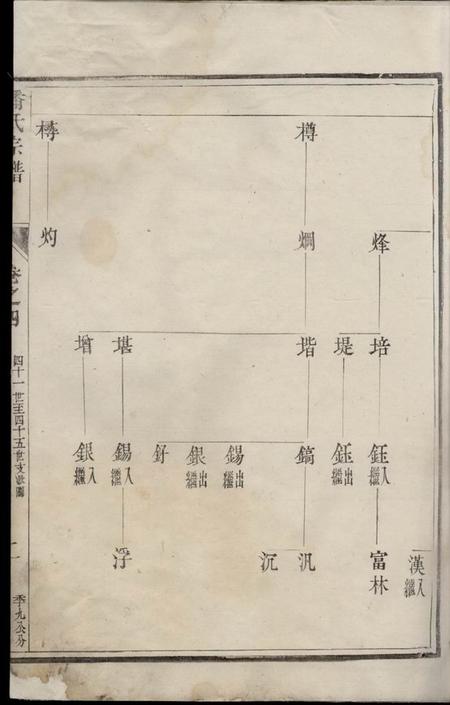 漢入繼
烽
培
鈺入繼
富林
堤
鈺出繼
樽
烱
堦
鎬
汎
沉
錫出繼
銀出繼
釪
堪
錫入繼
浮
增
銀入繼
灼
潘氏宗譜
卷之四
四十一世至四十五世支世圖
季九公分